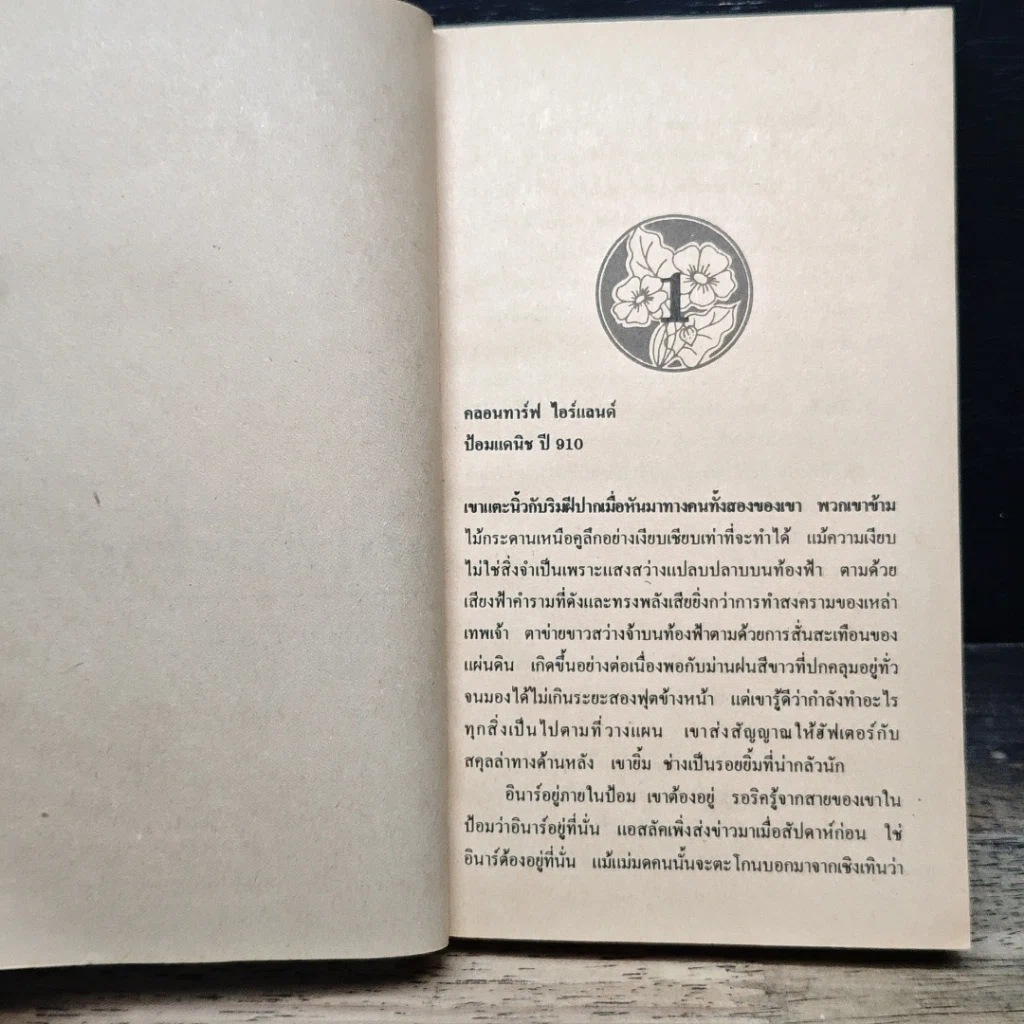 1
คลอนทาร์ฟ ไอร์แลนด์
ป้อมแดนิช ปี 910
เขาแตะนิ้วกับริมฝีปากเมื่อหันมาทางคนทั้งสองของเขา พวกเขาข้าม
ไม้กระดานเหนือคูลึกอย่างเงียบเชียบเท่าที่จะทำได้ แม้ความเงียบ
ไม่ใช่สิ่งจำเป็นเพราะแสงสว่างแปลบปลาบบนท้องฟ้า ตามด้วย
เสียงฟ้าคำรามที่ดังและทรงพลังเสียยิ่งกว่าการทำสงครามของเหล่า
เทพเจ้า ตาข่ายขาวสว่างจ้าบนท้องฟ้าตามด้วยการสั่นสะเทือนของ
แผ่นดิน เกิดขึ้นอย่างต่อเนื่องพอกับม่านฝนสีขาวที่ปกคลุมอยู่ทั่ว
จนมองได้ไม่เกินระยะสองฟุตข้างหน้า แต่เขารู้ดีว่ากำลังทำอะไร
ทุกสิ่งเป็นไปตามที่วางแผน เขาส่งสัญญาณให้ฮัฟเตอร์กับ
สคุลล่าทางด้านหลัง เขายิ้ม ช่างเป็นรอยยิ้มที่น่ากลัวนัก
อินาร์อยู่ภายในป้อม เขาต้องอยู่ รอริครู้จากสายของเขาใน
ป้อมว่าอินาร์อยู่ที่นั่น แอสลัคเพิ่งส่งข่าวมาเมื่อสัปดาห์ก่อน ใช่
อินาร์ต้องอยู่ที่นั่น แม้แม่มดคนนั้นจะตะโกนบอกมาจากเชิงเทินว่า